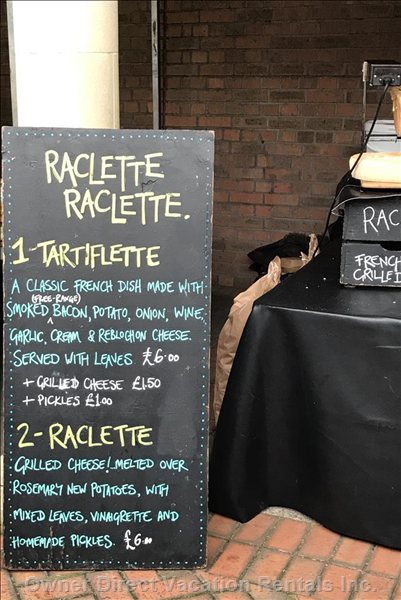 RACLETTE
RACLETTE.
1-TARTIFLETTE
A CLASSIC FRENCH DISH MADE WITH
(FREE-RANGE)
SMOKED BACON, POTATO, ONION, WINE,
GARLIC, CREAM & REBLOCHON CHEESE.
SERVED WITH LEAVES £6.00
+ GRILLED CHEESE £1.50
+ PICKLES £1.00
2-RACLETTE
GRILLED CHEESE! MELTED OVER
ROSEMARY NEW POTATOES, WITH
MIXED LEAVES, VINAIGRETTE AND
HOMEMADE PICKLES. £6.00
RAC
FRENCH
GRILLED
Owner Direct Vacation Rentals Inc.